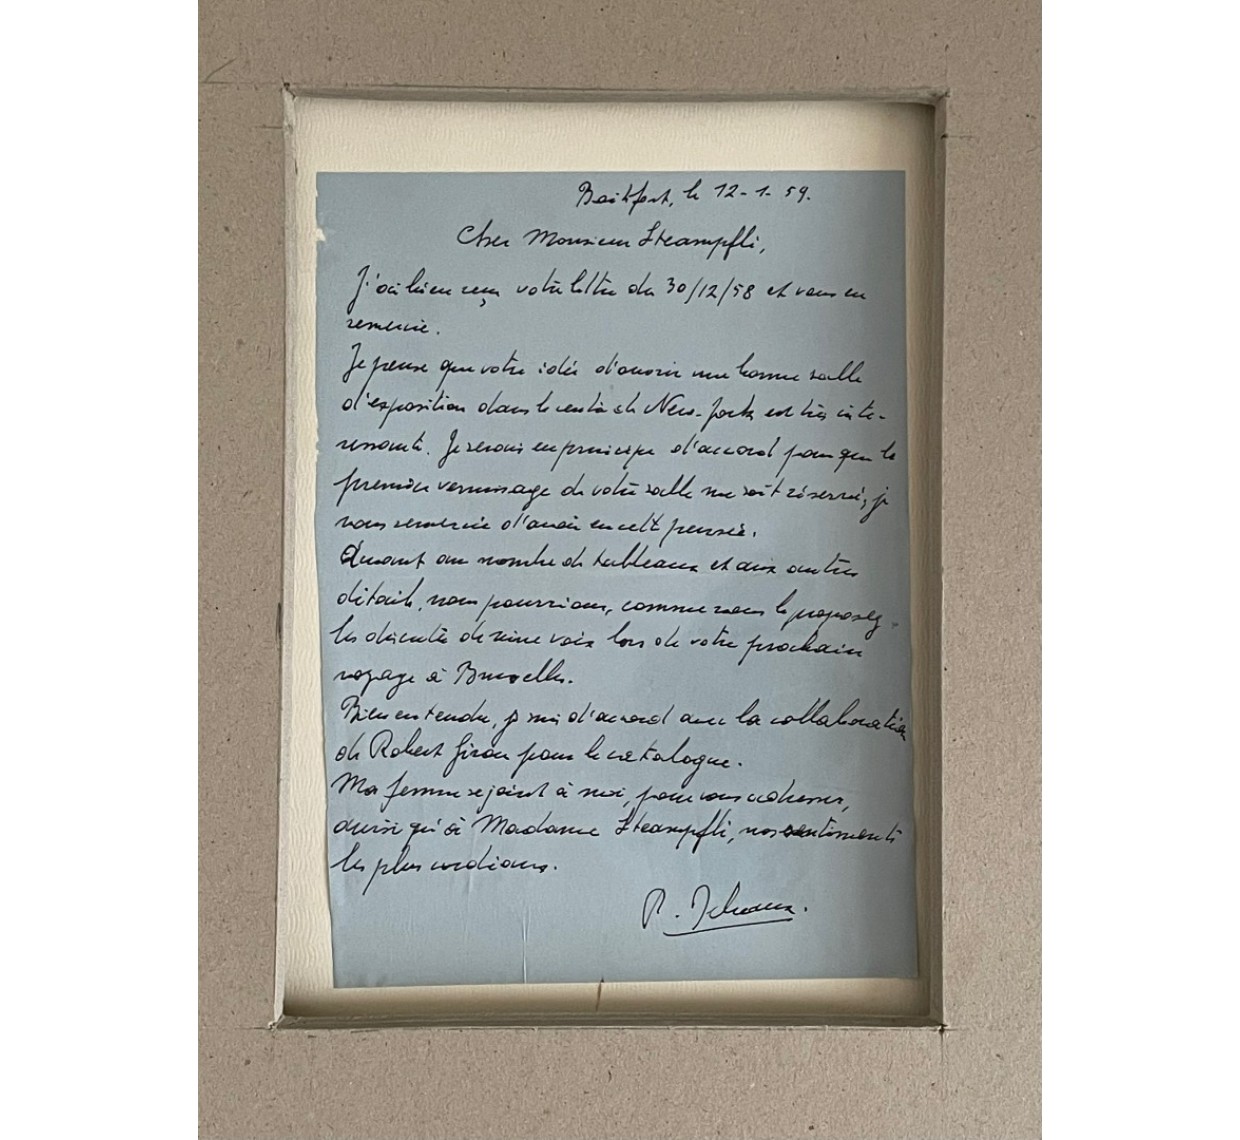 Boitsfort, le 12-1-59.
Cher Monsieur Steampfli,
J'ai bien reçu votre lettre du 30/12/58 et vous en
remercie.
Je pense que votre idée d'ouvrir une bonne salle
d'exposition dans le centre de New-York est très inté-
ressante. Je serais en principe d'accord pour que le
premier vernissage de votre salle me soit réservé, je
vous remercie d'avoir eu cette pensée.
Quant au nombre de tableaux et aux autres
détails, nous pourrions, comme vous le proposez,
les discuter de vive voix lors de votre prochain
voyage à Bruxelles.
Bien entendu, je suis d'accord avec la collaboration
de Robert Giron pour le catalogue.
Ma femme se joint à moi, pour vous adresser,
ainsi qu'à Madame Steampfli, nos sentiments
les plus cordiaux.
P. Delvaux.